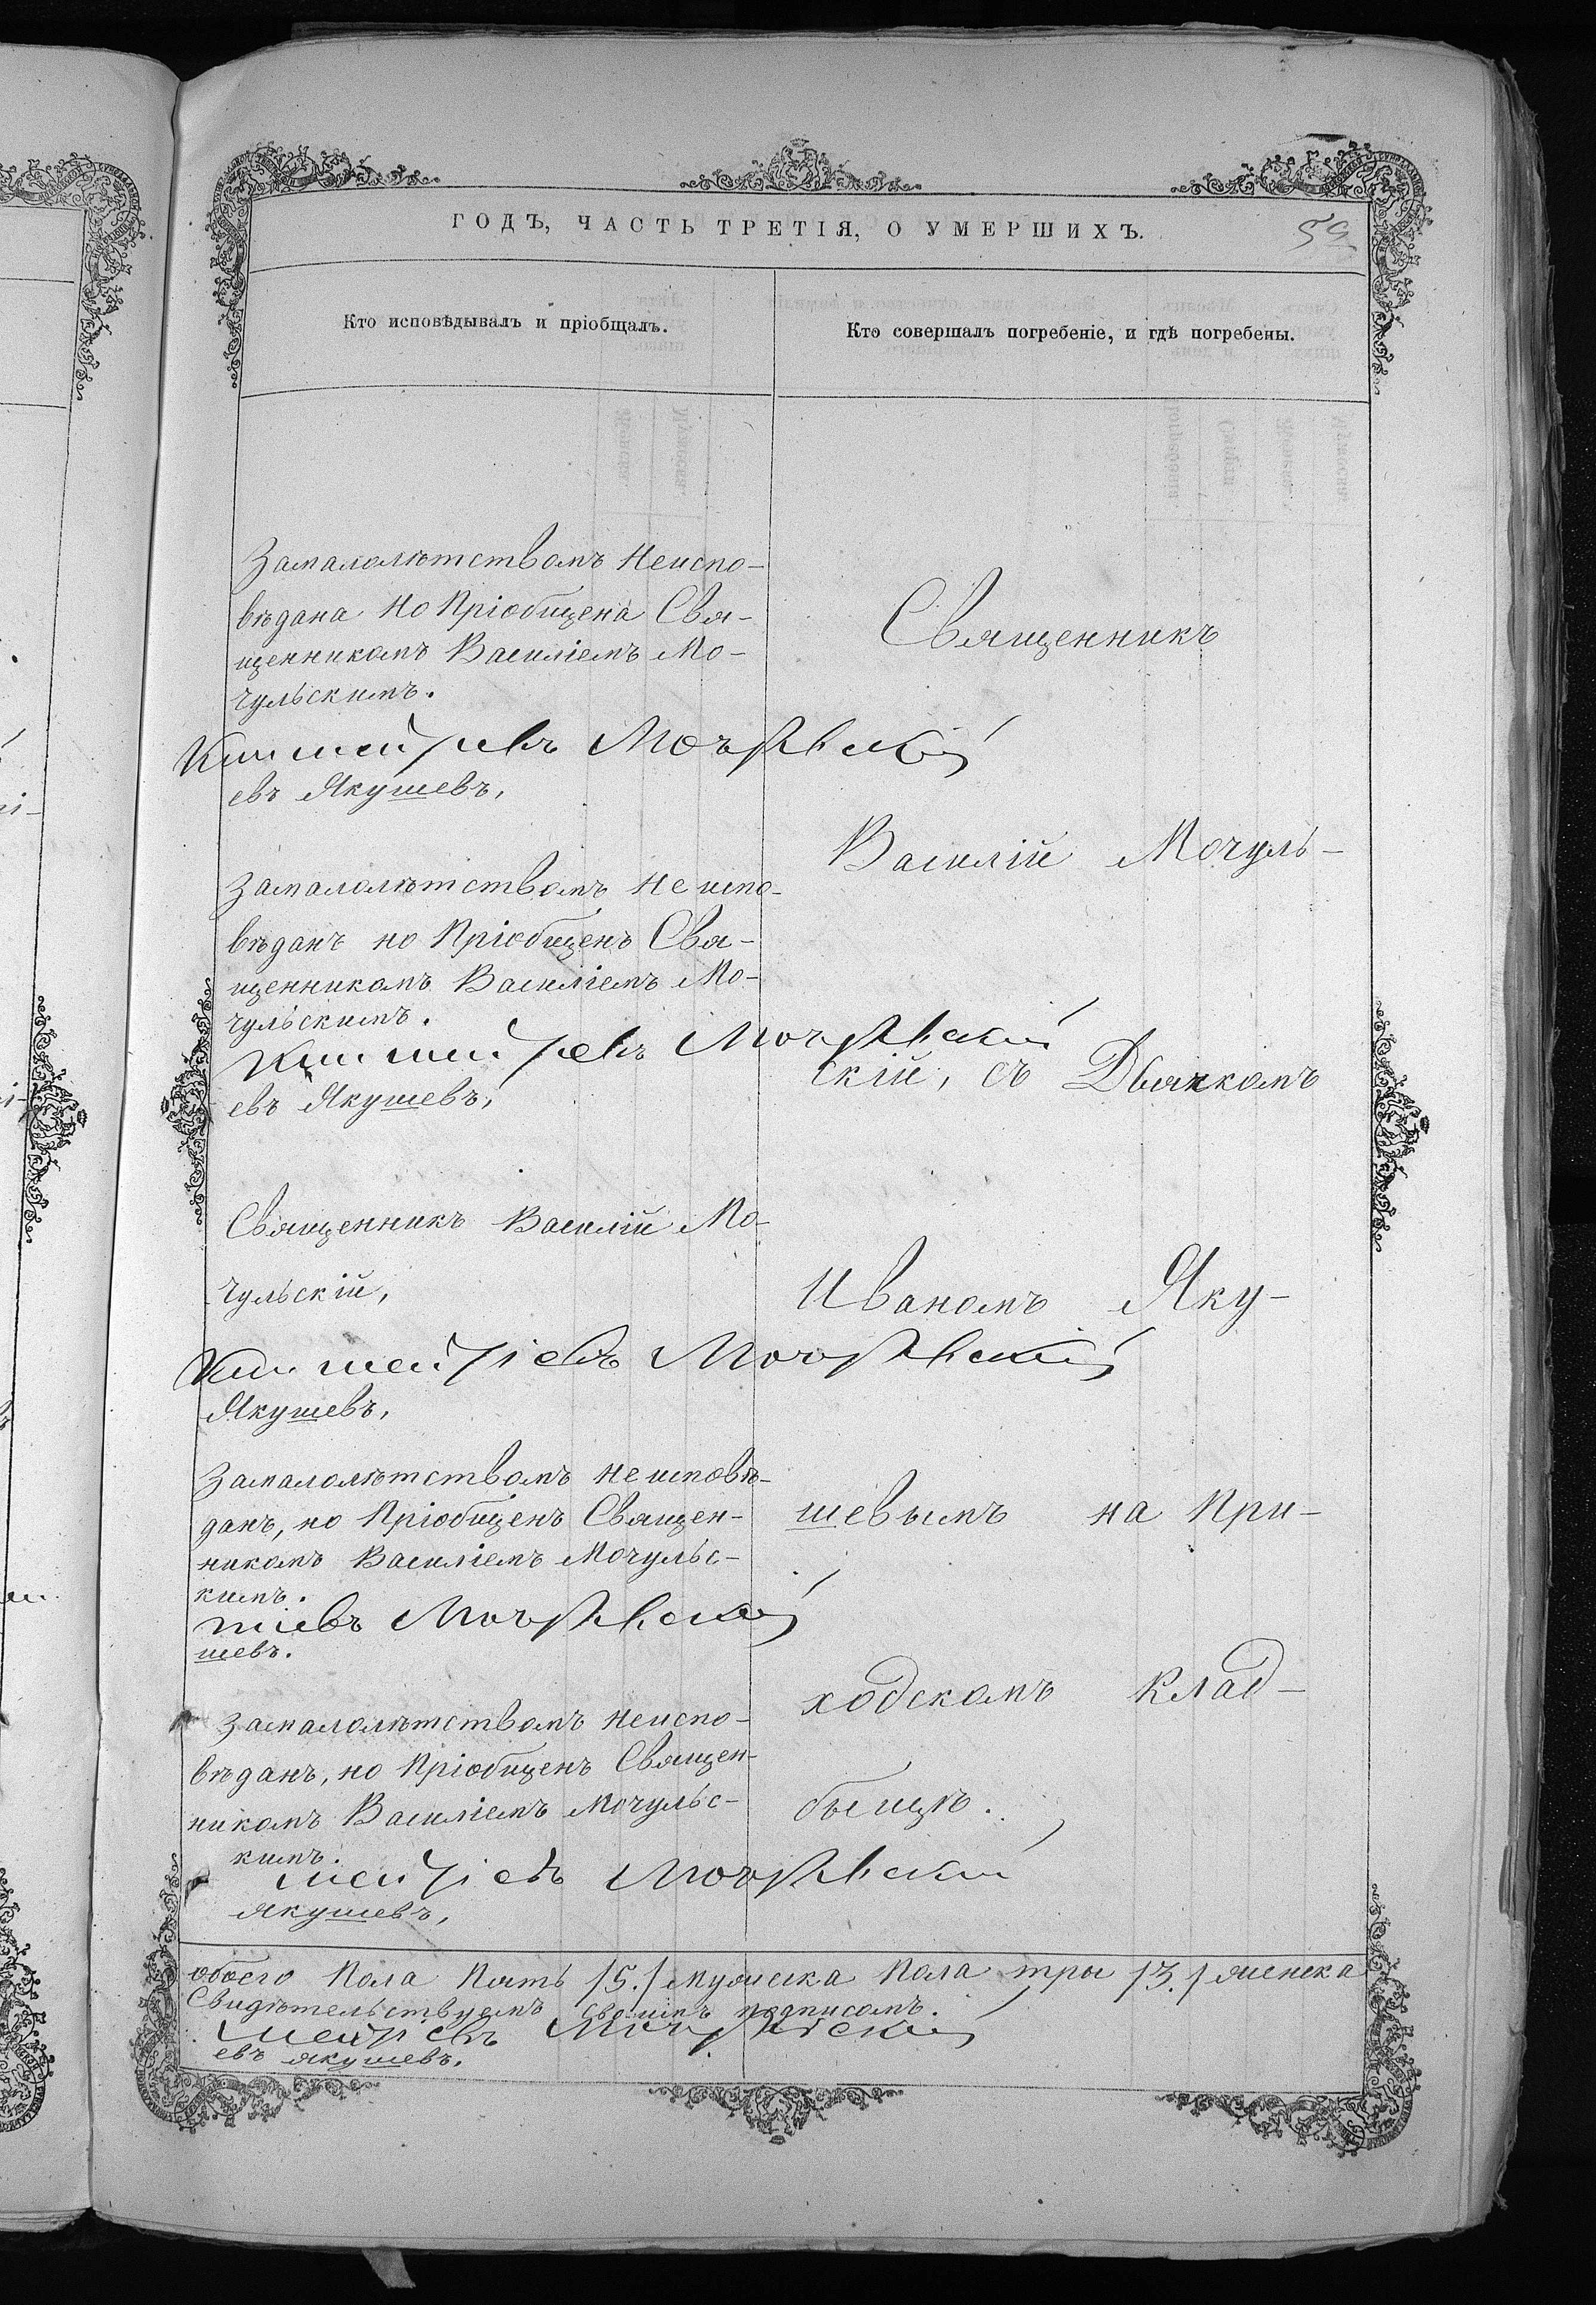 ГОДЪ, ЧАСТЬ ТРЕТІЯ, О УМЕРШИХЪ.
59
Кто исповѣдывалъ и пріобщалъ.
Замалолѣтствомъ неиспо-
вѣдана но Пріобщена Свя-
щенникомъ Василіемъ Мо-
чульскимъ.
Мочульскій
евъ Якушевъ,
Замалолѣтствомъ не испо-
вѣданъ но Пріобщенъ Свя-
щенникомъ Василіемъ Мо-
чульскимъ.
Мочульскій
евъ Якушевъ,
Священникъ Василій Мо-
чульскій,
Мочульскій
Якушевъ,
Замалолѣтствомъ не исповѣ-
данъ, но Пріобщенъ Священ-
никомъ Василіемъ Мочульс-
кимъ.
Мочульскій
шевъ.
Замалолѣтствомъ неиспо-
вѣданъ, но Пріобщенъ Священ-
никомъ Василіемъ Мочульс-
кимъ.
Мочульскій
Якушевъ,
Кто совершалъ погребеніе, и гдѣ погребены.
Священникъ
Василій Мочуль-
скій, съ Дьячкомъ
Иваномъ Яку-
шевымъ на При-
ходскомъ Клад-
быщѣ.
обоего Пола Пять /5./ мужеска Пола тры /3./ женска
Свидѣтельствуемъ своимъ подписомъ.
Мочульскій
евъ Якушевъ.